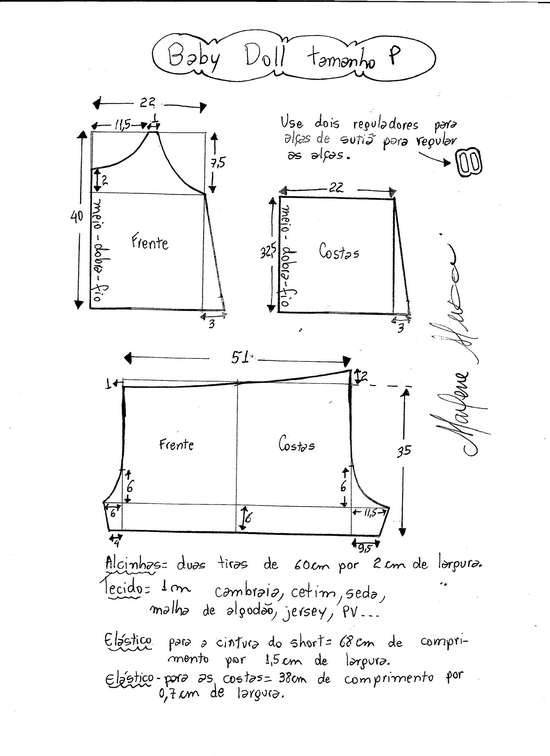 Baby Doll tamanho P
22
11,5
1
7,5
2
40
meio-dobra-fio
Frente
3
Use dois reguladores para
alças de sutiã para regular
as alças.
22
32,5
meio-dobra-fio
Costas
3
Marlene Mukai
51
1
2
Frente
Costas
35
6
6
6
11,5
6
4
9,5
Alcinhas= duas tiras de 60cm por 2cm de largura.
Tecido= 1m cambraia, cetim, seda,
malha de algodão, jersey, PV...
Elástico para a cintura do short= 68cm de compri-
mento por 1,5cm de largura.
Elástico-para as costas= 38cm de comprimento por
0,7cm de largura.